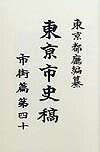 東京都廳編纂
東京市史稿
市街篇第四十